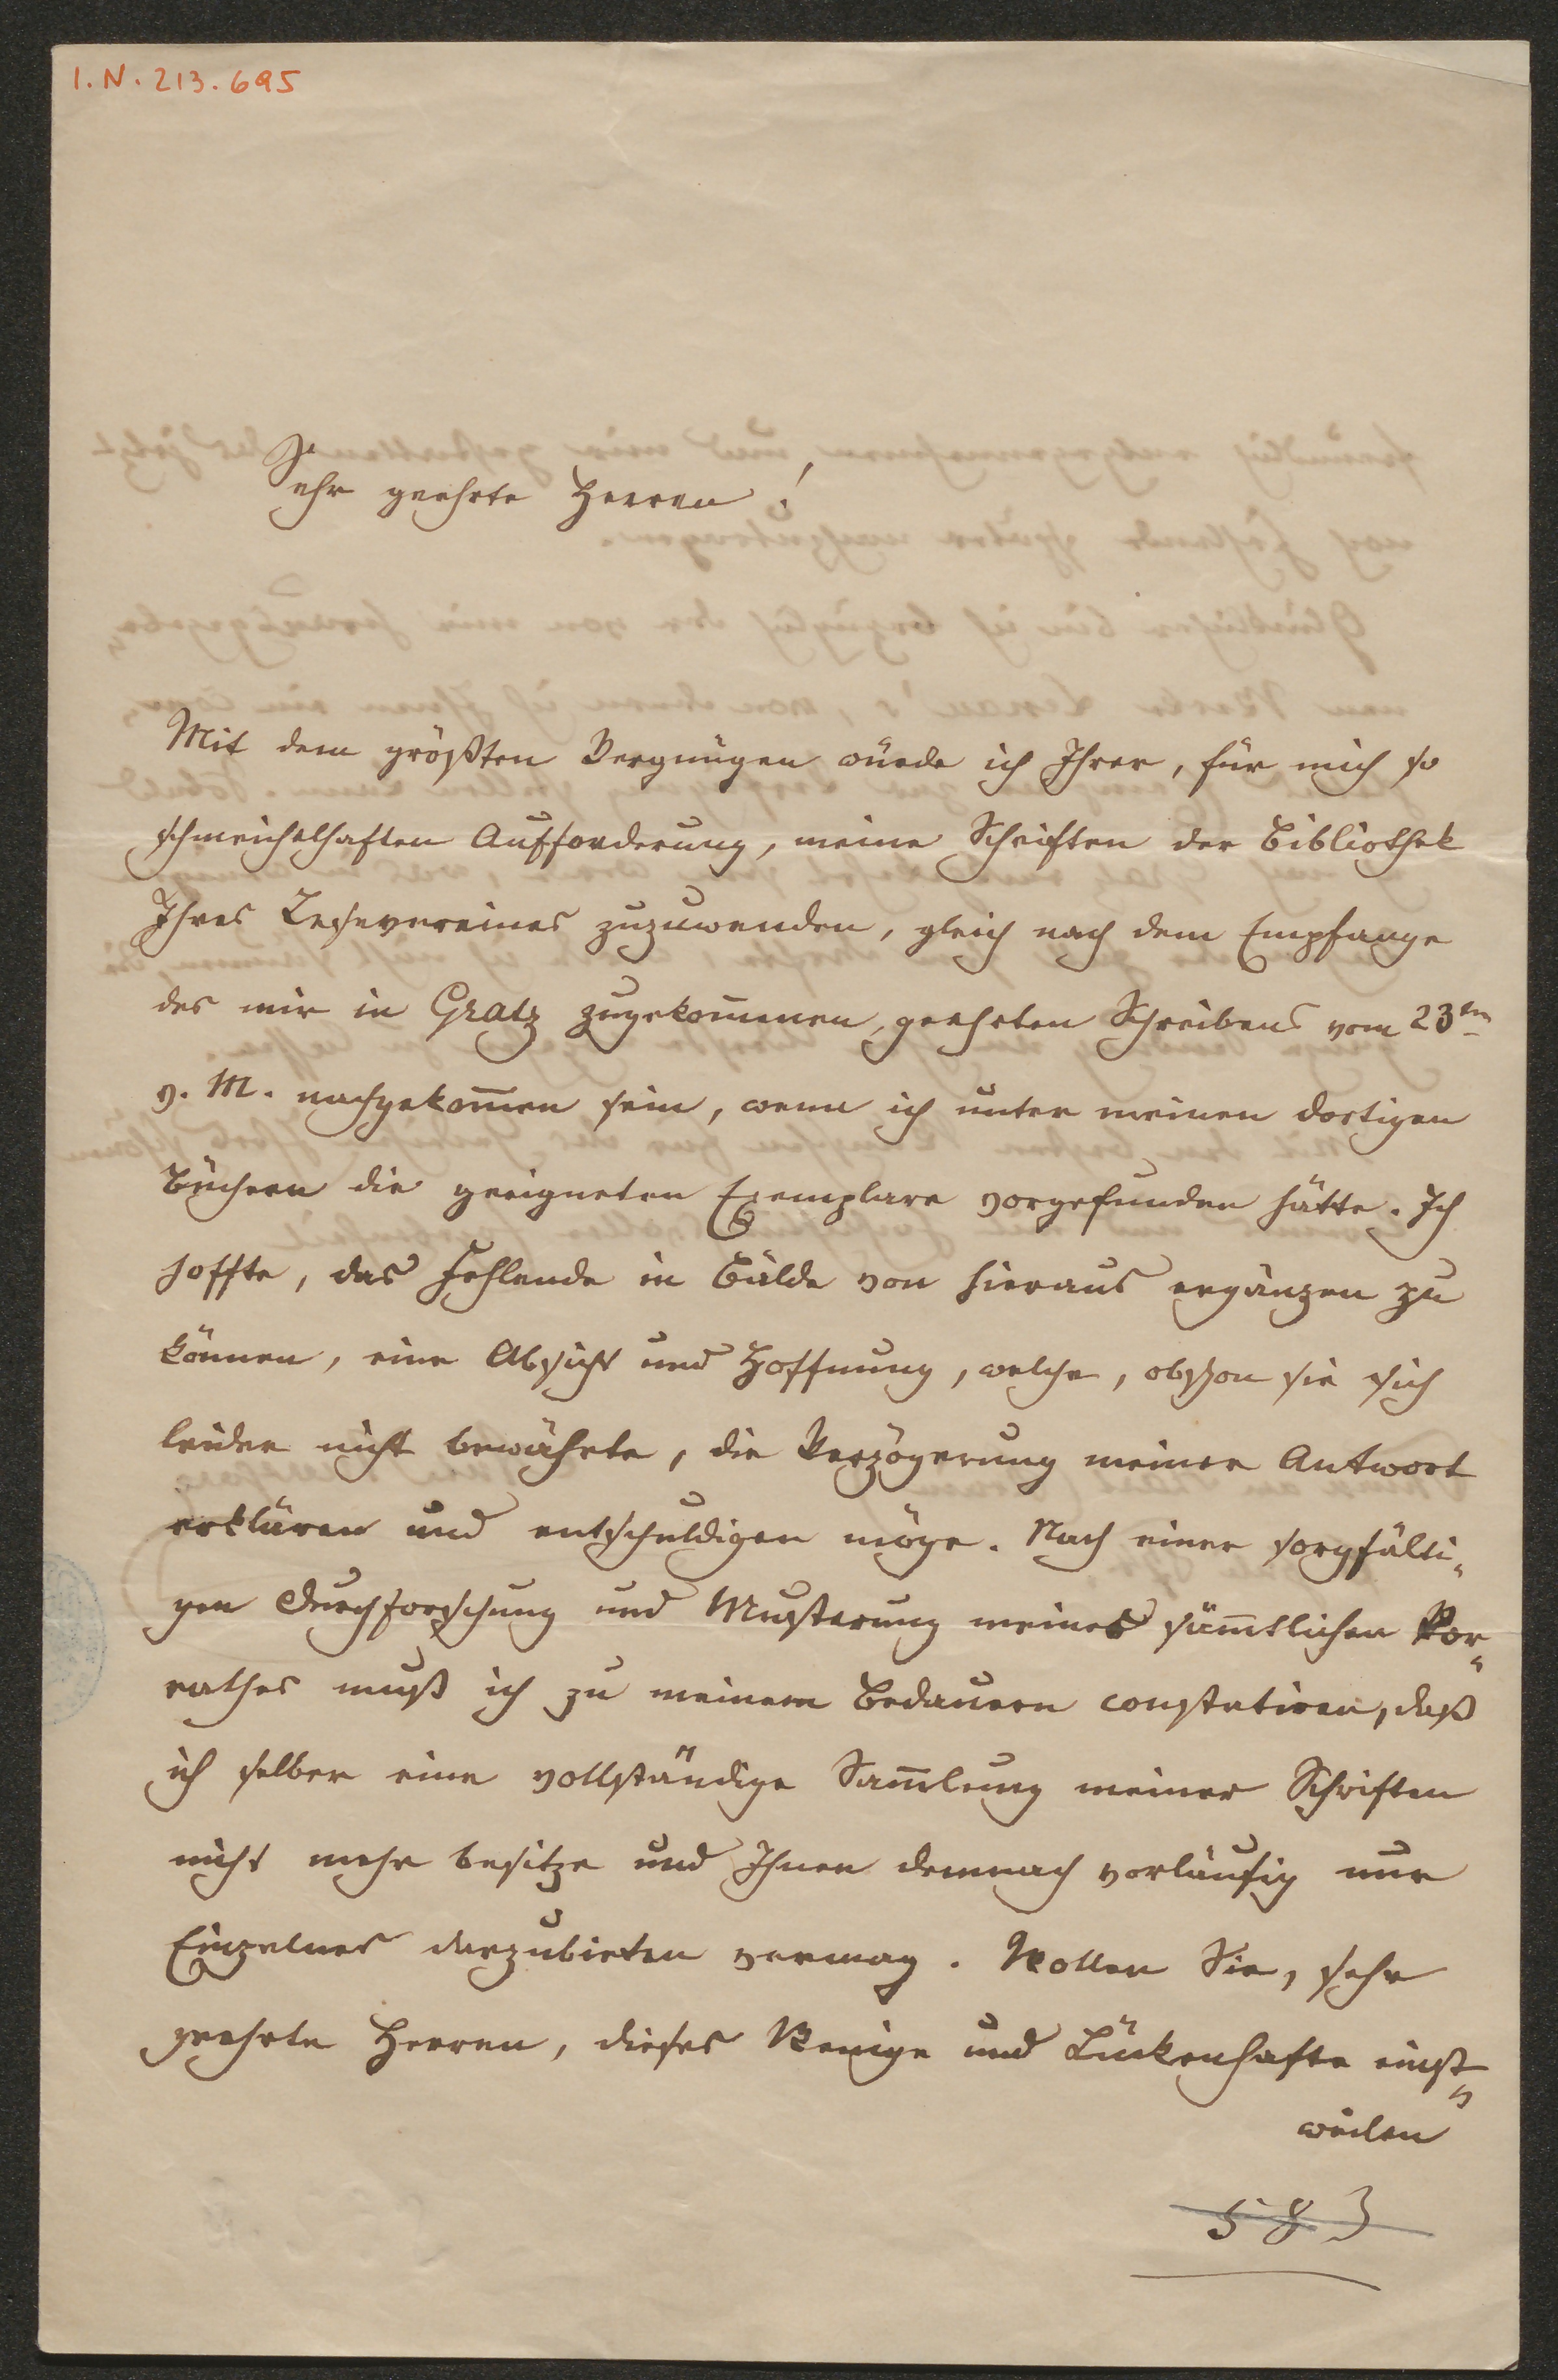 I.N. 213.695
Sehr geehrte Herren!
Mit dem größten Vergnügen würde ich Ihrer, für mich so
schmeichelhaften Aufforderung, meine Schriften der Bibliothek
Ihres Lesevereines zuzuwenden, gleich nach dem Empfange
des mir in Gratz zugekom̄enen, geehrten Schreibens vom 23ten
v. M. nachgekom̄en sein, wenn ich unter meinen dortigen
Büchern die geeigneten Exemplare vorgefunden hätte. Ich
hoffte, das Fehlende in Bälde von hieraus ergänzen zu
können, eine Absicht und Hoffnung, welche, obschon sie sich
leider nicht bewährte, die Verzögerung meiner Antwort
erklären und entschuldigen möge. Nach einer sorgfälti-
gen Durchforschung und Musterung meines säm̄tlichen Vor-
rathes muß ich zu meinem Bedauern constatiren, daß
ich selber eine vollständige Sam̄lung meiner Schriften
nicht mehr besitze und Ihnen demnach vorläufig nur
Einzelnes darzubieten vermag. Wollen Sie, sehr
geehrte Herren, dieses Wenige und Lückenhafte einst-
weilen
583